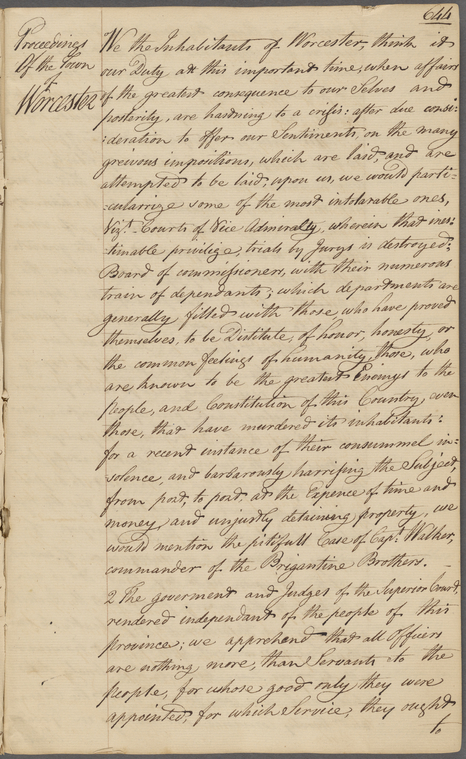 644
Proceedings
Of the Town
of
Worcester
We the Inhabitants of Worcester, think it
our Duty, at this important time, when affairs
of the greatest consequence to our Selves and
posterity, are hastning to a crisis: after due consi:
:deration to offer our Sentiments, on the many
greivous impositions, which are laid, and are
attempted to be laid, upon us, we would parti-
-cularrize some of the most intolarable ones,
Vizt. Courts of Vice Admiralty, wherein that ines-
timable privilige, trials by Jurys is destroyed;
Board of commissioners, with their numerous
train of dependants; which departments are
generally filled with those who have proved
themselves, to be Distitute, of honor, honesty, or
the common feelings of humanity, those, who
are known to be the greatest Enemys to the
people, and Constitution of this Country, even
those, that have murdered its inhabitants:
for a recent instance of their consummel in-
solence, and barbarously harrising the Subject,
from post, to post, at the Expence of time and
money, and unjustly detaining property, we
would mention the pitifull Case of Capt. Walker,
commander of the Brigantine Brothers.
2 The goverment and Judges of the Superior Court,
rendered independant of the people of this
province; we apprehend that all Officers
are nothing more, than Servants to the
people, for whose good only they were
appointed, for which Service, they ought
to